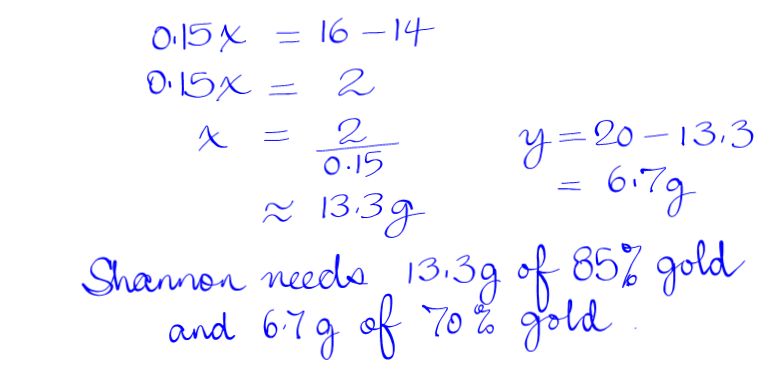 0.15x = 16 - 14
0.15x = 2
x = 2/0.15
≈ 13.3g
y = 20 - 13.3
= 6.7g
Shannon needs 13.3g of 85% gold
and 6.7g of 70% gold.